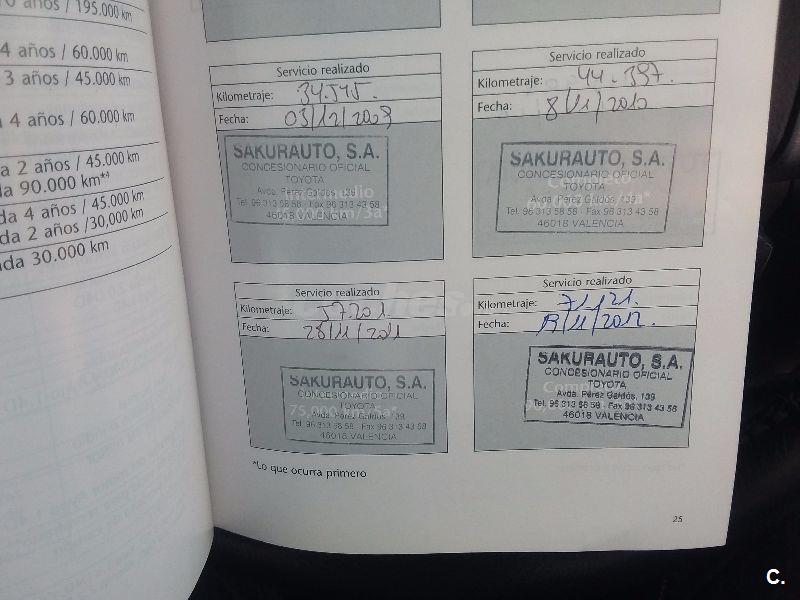 195.000 km
4 años / 60.000 km
3 años / 45.000 km
4 años / 60.000 km
a 2 años / 45.000 km
da 90.000 km*⁴
da 4 años / 45.000 km
da 2 años /30,000 km
ada 30.000 km
Servicio realizado
Kilometraje: 34.545.
Fecha: 03/12/2009
SAKURAUTO, S.A.
CONCESIONARIO OFICIAL
TOYOTA
Avda. Pérez Galdós, 139
Tel. 96 313 58 58 - Fax 96 313 43 58
46018 VALENCIA
Intermedio
Servicio realizado
Kilometraje: 44.397.
Fecha: 8/11/2010
SAKURAUTO, S.A.
CONCESIONARIO OFICIAL
TOYOTA
Avda. Pérez Galdós, 139
Tel. 96 313 58 58 - Fax 96 313 43 58
46018 VALENCIA
Completo
Servicio realizado
Kilometraje: 57.201.
Fecha: 28/11/2011
SAKURAUTO, S.A.
CONCESIONARIO OFICIAL
TOYOTA
Avda. Pérez Galdós, 139
Tel. 96 313 58 58 - Fax 96 313 43 58
46018 VALENCIA
Servicio realizado
Kilometraje: 71.121.
Fecha: 19/11/2012.
SAKURAUTO, S.A.
CONCESIONARIO OFICIAL
TOYOTA
Avda. Pérez Galdós, 139
Tel. 96 313 58 58 - Fax 96 313 43 58
46018 VALENCIA
*Lo que ocurra primero
25
C.